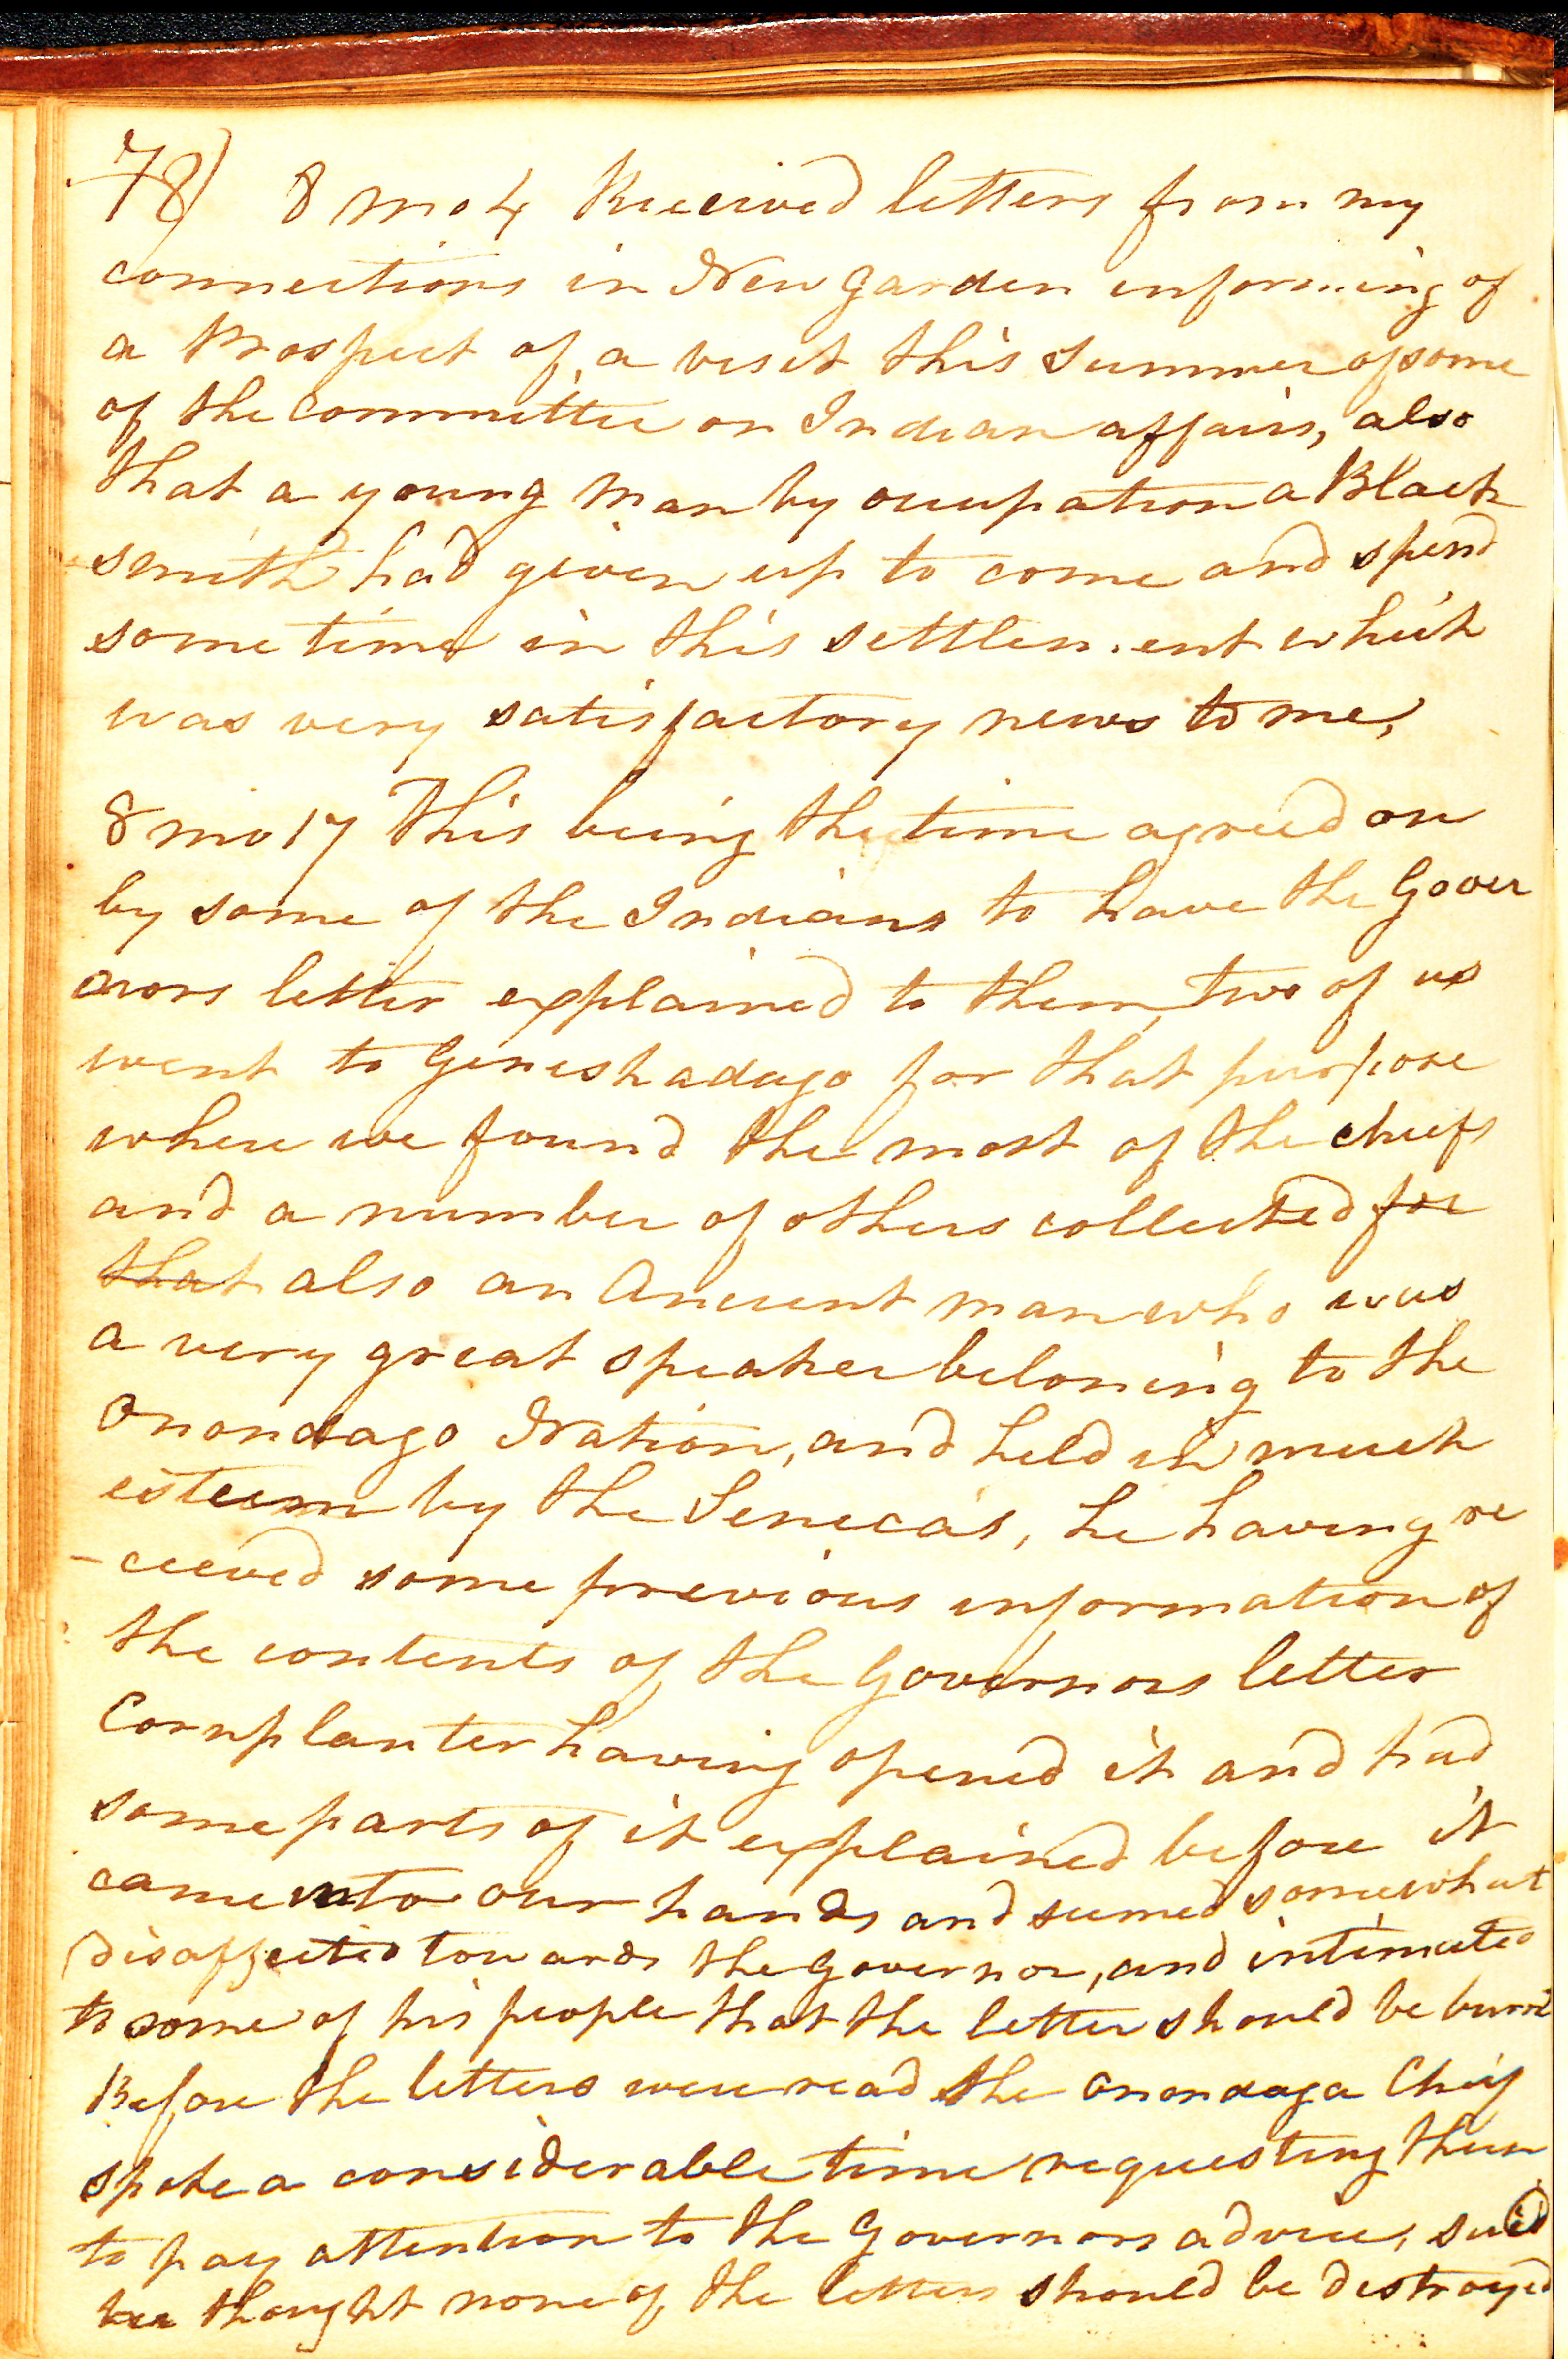 78) 8 mo 4 Received letters from my
connections in New Garden informing of
a Prospect of a visit this Summer of some
of the committee on Indian affairs, also
that a young man by occupation a Black
smith had given up to come and spend
some time in this settlement which
was very satisfactory news to me,
8 mo 17 This being the time agreed on
by some of the Indians to have the Gover
nors letter explained to them, two of us
went to Geneshadago for that purpose
where we found the most of the chiefs
and a number of others collected for
that also an Ancient man who was
a very great speaker beloning to the
Onondago Nation, and held in much
esteem by the Seneca's, he having re
-ceeved some previous information of
the contents of the Governors letter
Cornplanter having opened it and had
some parts of it explained before it
came into our hands and seemed somewhat
disaffected towards the Governor, and intimated
to some of his people that the letter should be burnt
Before the letters were read the Onondaga Chief
spoke a considerable time requesting them
to pay attention to the Governors advice, said
he thought none of the letters should be destroyed